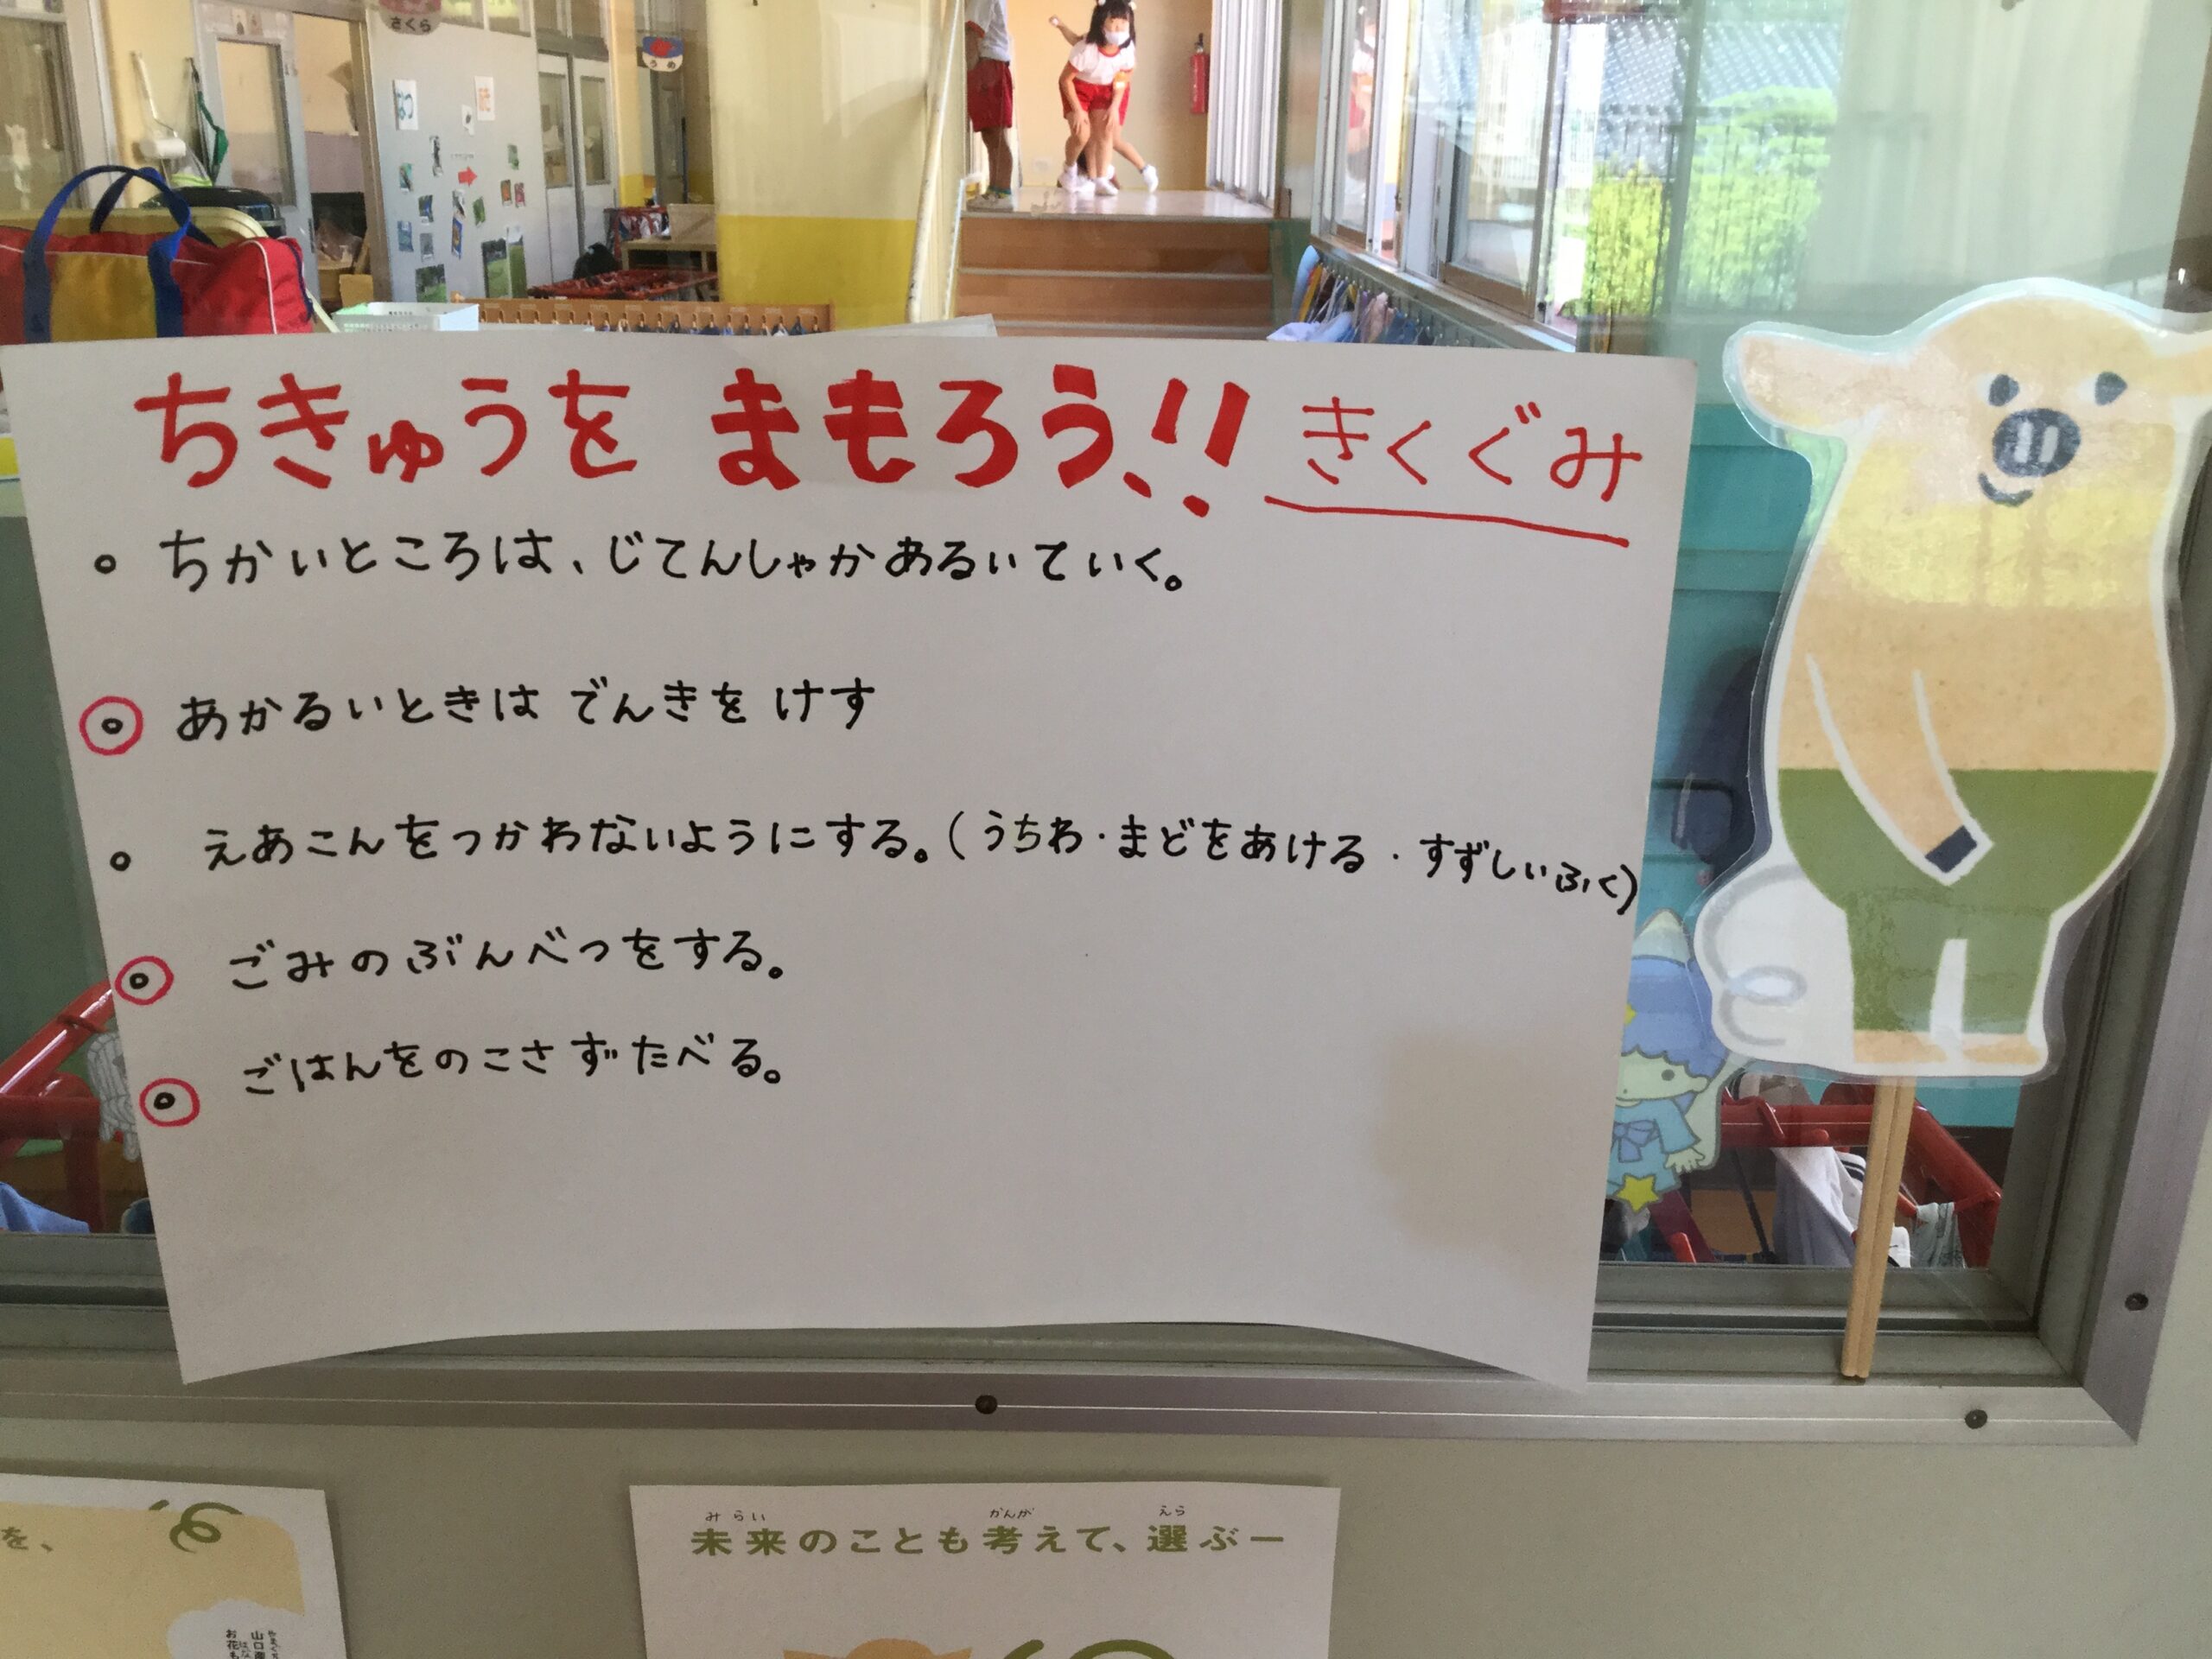 さくら
うめ
ちきゅうを まもろう!! きくぐみ
。ちかいところは、じてんしゃかあるいていく。
。あかるいときは でんきを けす
。えあこんをつかわないようにする。(うちわ・まどをあける・すずしいふく)
。ごみのぶんべつをする。
。ごはんをのこさずたべる。
を、
みらい かんが えら
未来のことも考えて、選ぶー